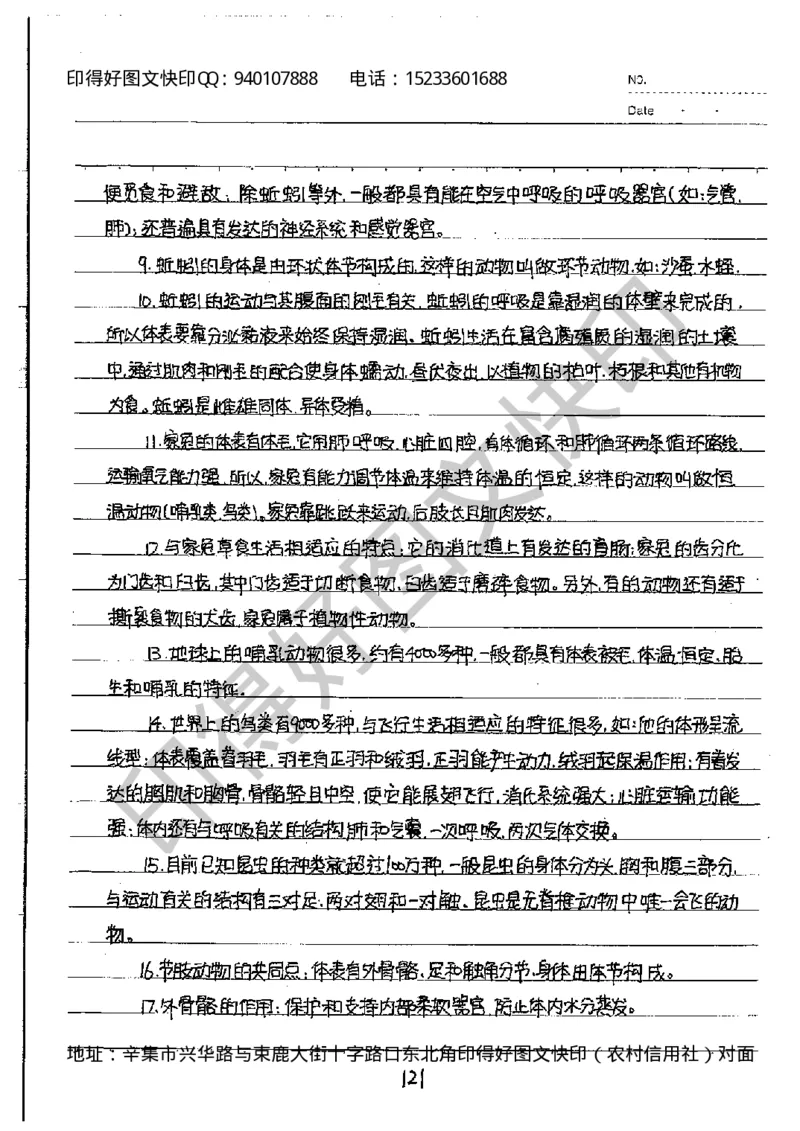 印得好图文快印QQ：940107888 电话：15233601688
NO.
Date
便觅食和避敌；除蚯蚓等外，一般都具有能在空气中呼吸的呼吸器官(如：气管、
肺)；还普遍具有发达的神经系统和感觉器官。
9.蚯蚓的身体是由环状体节构成的，这样的动物叫做环节动物，如：沙蚕、水蛭。
10.蚯蚓的运动与其腹面的刚毛有关，蚯蚓的呼吸是靠湿润的体壁来完成的，
所以体表要靠分泌黏液来始终保持湿润。蚯蚓生活在富含腐殖质的湿润的土壤
中，通过肌肉和刚毛的配合使身体蠕动，昼伏夜出，以植物的枯叶、朽根和其他有机物
为食。蚯蚓是雌雄同体，异体受精。
11.家兔的体表有体毛，它用肺呼吸，心脏四腔，有体循环和肺循环两条循环路线，
运输氧气能力强，所以，家兔有能力调节体温来维持体温的恒定，这样的动物叫做恒
温动物(哺乳类、鸟类)。家兔靠跳跃来运动，后肢长且肌肉发达。
12.与家兔草食生活相适应的特点：它的消化道上有发达的盲肠；家兔的齿分化
为门齿和臼齿，其中门齿适于切断食物，臼齿适于磨碎食物。另外，有的动物还有适于
撕裂食物的犬齿，家兔属于植物性动物。
13.地球上的哺乳动物很多，约有4000多种，一般都具有体表被毛、体温恒定、胎
生和哺乳的特征。
14.世界上的鸟类有9000多种，与飞行生活相适应的特征很多，如：他的体形呈流
线型；体表覆盖着羽毛，羽毛有正羽和绒羽，正羽能产生动力，绒羽起保温作用；有着发
达的胸肌和胸骨，骨骼轻且中空，使它能展翅飞行，消化系统强大；心脏运输功能
强；体内还有与呼吸有关的结构肺和气囊，一次呼吸，两次气体交换。
15.目前已知昆虫的种类就超过100万种，一般昆虫的身体分为头、胸和腹三部分，
与运动有关的结构有三对足、两对翅和一对触、昆虫是无脊椎动物中唯一会飞的动
物。
16.节肢动物的共同点：体表有外骨骼、足和触角分节、身体由体节构成。
17.外骨骼的作用：保护和支持内部柔软器官，防止体内水分蒸发。
地址：辛集市兴华路与束鹿大街十字路口东北角印得好图文快印（农村信用社）对面
121
印得好图文快印